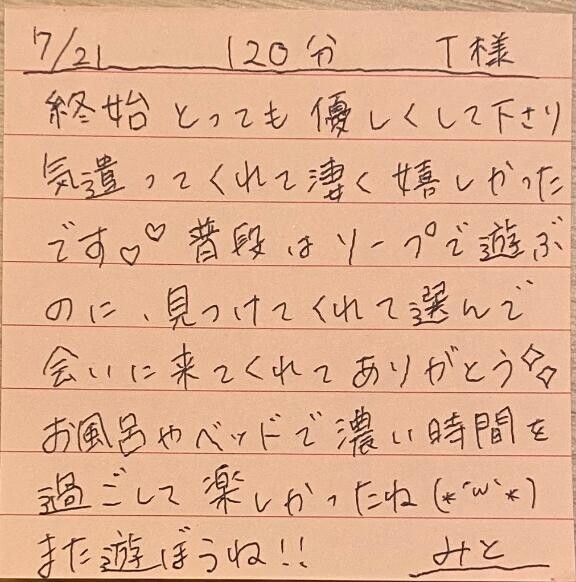 7/21 120分 T様
終始とっても優しくして下さり
気遣ってくれて凄く嬉しかった
です♡♡ 普段はソープで遊ぶ
のに、見つけてくれて選んで
会いに来てくれてありがとう✧✧
お風呂やベッドで濃い時間を
過ごして楽しかったね(*´ω`*)
また遊ぼうね!! みと